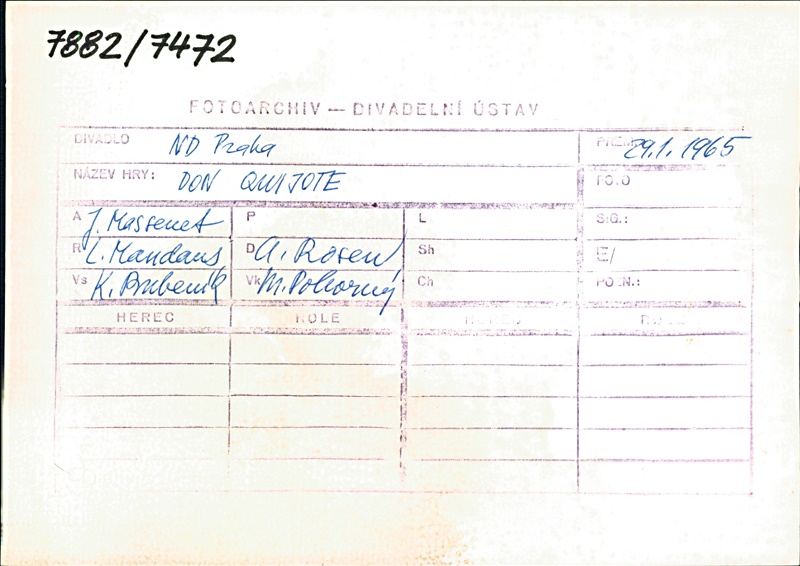 7882/7472
FOTOARCHIV — DIVADELNÍ ÚSTAV
DIVADLO ND Praha PREM. 29.1.1965
NÁZEV HRY: DON QUIJOTE FOTO
A J. Massenet P L SIG.:
R L. Mandaus D A. Rosen Sh E/
Vs K. Brubeník Vk M. Pokorný Ch POZN.:
HEREC ROLE HEREC ROLE